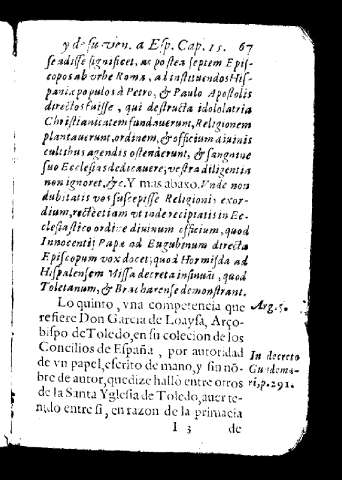 y de su ven. a Esp. Cap. 15. 67
se adisse significet, ac postea septem Epis-
copos ab vrbe Roma, ad instituendos His-
paniæ populos à Petro, & Paulo Apostolis
directos fuisse, qui destructa idololatria
Christianitatem fundauerunt, Religionem
plantauerunt, ordinem, & officium diuinis
cultibus agendis ostenderunt, & sanguine
suo Ecclesias dedicauere; vestra diligentia
non ignoret, &c. Y mas abaxo. Vnde non
dubitatis vos suscepisse Religionis exor-
dium, restet etiam vt inde recipiatis in Ec-
clesiastico ordine diuinum officium, quod
Innocentij Papæ ad Eugubinum directa
Episcopum vox docet; quod Hormisda ad
Hispalensem Missa decreta insinuāt, quod
Toletanum, & Bracharense demonstrant.
Lo quinto, vna competencia que
Arg. 5.
refiere Don Garcia de Loaysa, Arço-
bispo de Toledo, en su coleccion de los
Concilios de España, por autoridad
In decreto
de vn papel, escrito de mano, y sin nō-
Gundema-
bre de autor, que dize hallò entre otros
ri, p. 291.
de la Santa Yglesia de Toledo, auer te-
nido entre si, en razon de la primacia
I 3 de